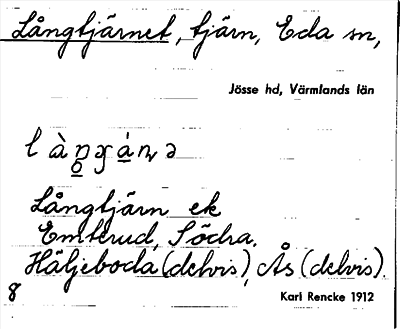 Långtjärnet, tjärn, Eda sn,
Jösse hd, Värmlands län
Långtjärn ek
Emterud, Södra.
Häljeboda (delvis), Ås (delvis).
8
Karl Rencke 1912